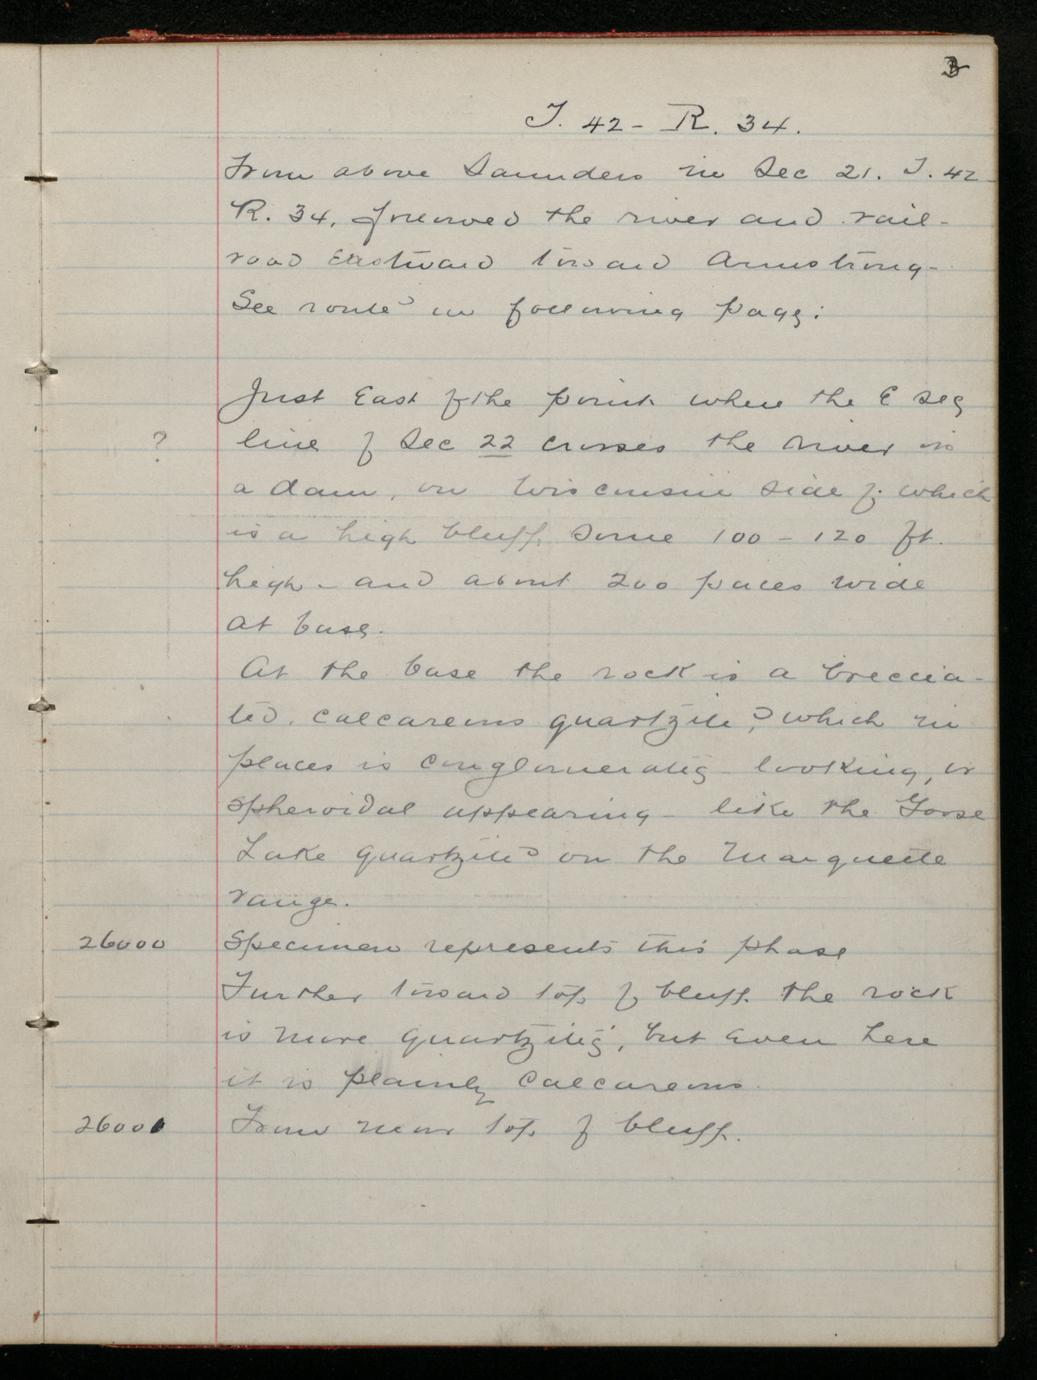 3
T. 42 - R. 34.
From above Saunders in Sec 21. T. 42
R. 34, followed the river and rail-
road Eastward toward Armstrong-
See route on following page:
Just East of the point where the E seg
? line of Sec 22 crosses the river is
a dam, on Wisconsin side of which
is a high bluff some 100 - 120 ft.
high - and about 200 paces wide
at base.
At the base the rock is a breccia-
ted, calcareous quartzite, which in
places is conglomeratic looking, or
spheroidal appearing - like the Goose
Lake quartzite on the Marquette
range.
26000 Specimen represents this phase
Further toward top of bluff the rock
is more quartzitic, but even here
it is plainly calcareous.
26001 From near top of bluff.